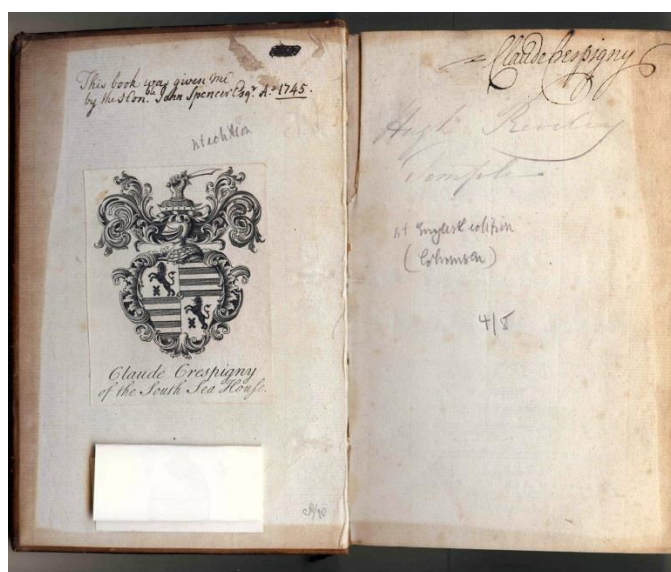 This book was given me
by the Hon.ble John Spencer Esqr. Ao. 1745.
Claude Crespigny
of the South Sea House.
Claude Crespigny
Hugh
Temple
1st English edition
4/8